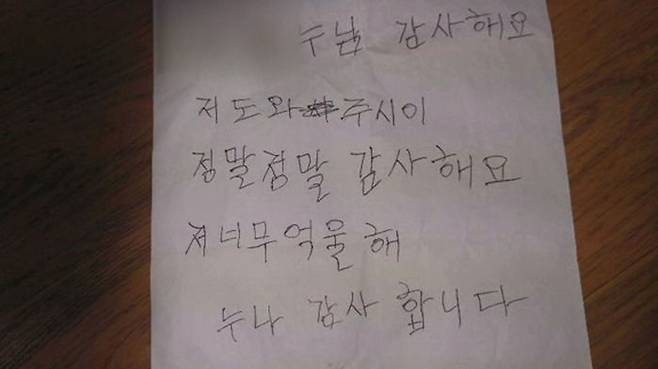 누님 감사해요
저도와주시이
정말정말 감사해요
저너무억울해
누나 감사 합니다